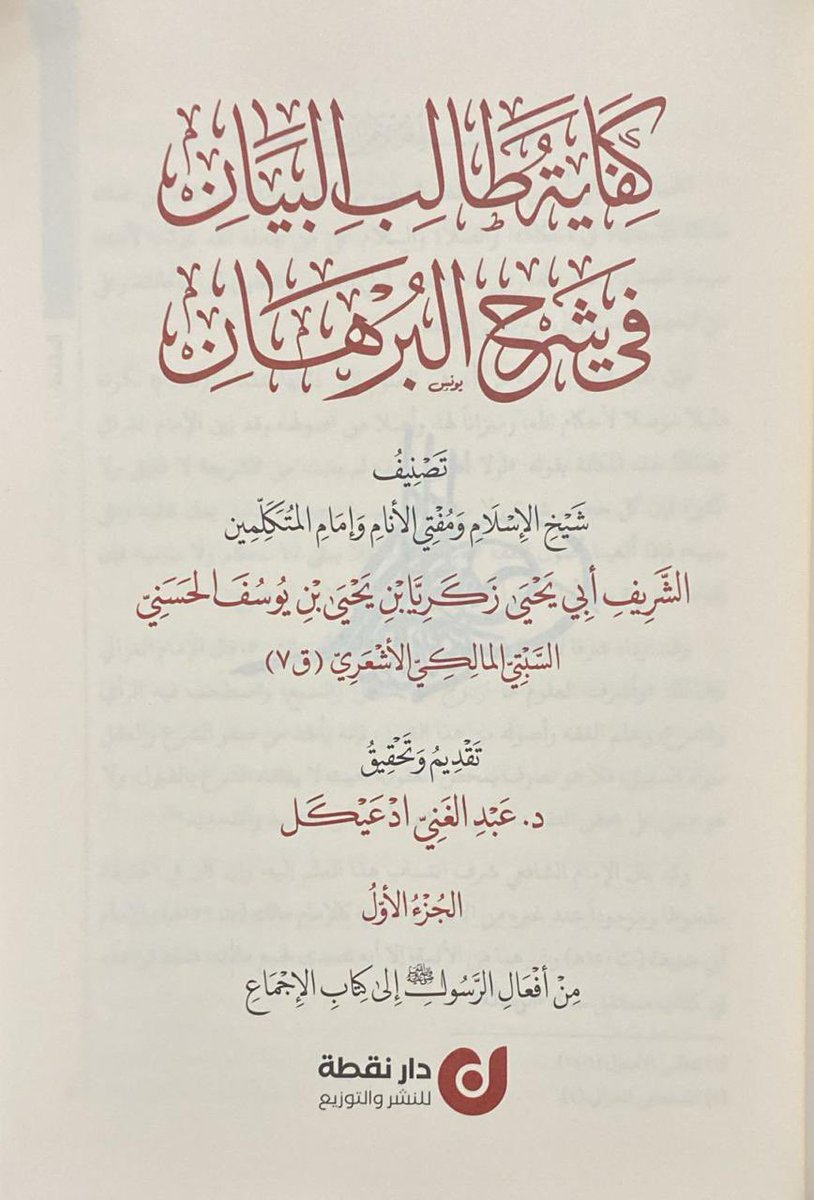 كِفَايَةُ طَالِبِ البَيَانِ
فِي شَرْحِ البُرْهَانِ
يونس
تَصْنِيفُ
شَيْخِ الإِسْلَامِ وَمُفْتِي الأَنَامِ وَإِمَامِ المُتَكَلِّمِين
الشَّرِيفِ أَبِي يَحْيَى زَكَرِيَّا بْنِ يَحْيَى بْنِ يُوسُفَ الحَسَنِيّ
السَّبْتِيّ المَالِكِيّ الأَشْعَرِيّ (ق٧)
تَقْدِيمُ وَتَحْقِيقُ
د. عَبْدِ الغَنِيّ ادْعَيْكَل
الجُزْءُ الأَوَّلُ
مِنْ أَفْعَالِ الرَّسُولِ ﷺ إِلَى كِتَابِ الإِجْمَاعِ
دار نقطة
للنشر والتوزيع